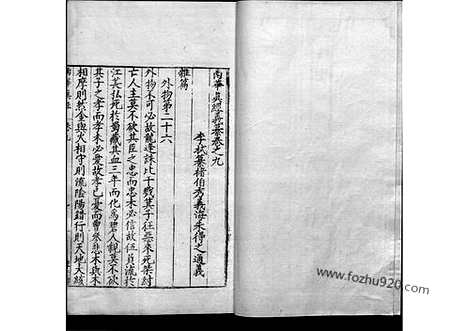 南華真經義纂卷之九
李栻纂褚伯秀義海朱得之通義
雜篇
外物第二十六
外物不可必故龍逢誅比干戮箕子狂惡來死桀紂
亡人主莫不欲其臣之忠而忠未必信故伍員流於
江萇弘死於蜀藏其血三年而化為碧人親莫不欲
其子之孝而孝未必愛故孝己憂而曾參悲木與木
相摩則然金與火相守則流陰陽錯行則天地大絯
www.fozhu920.com